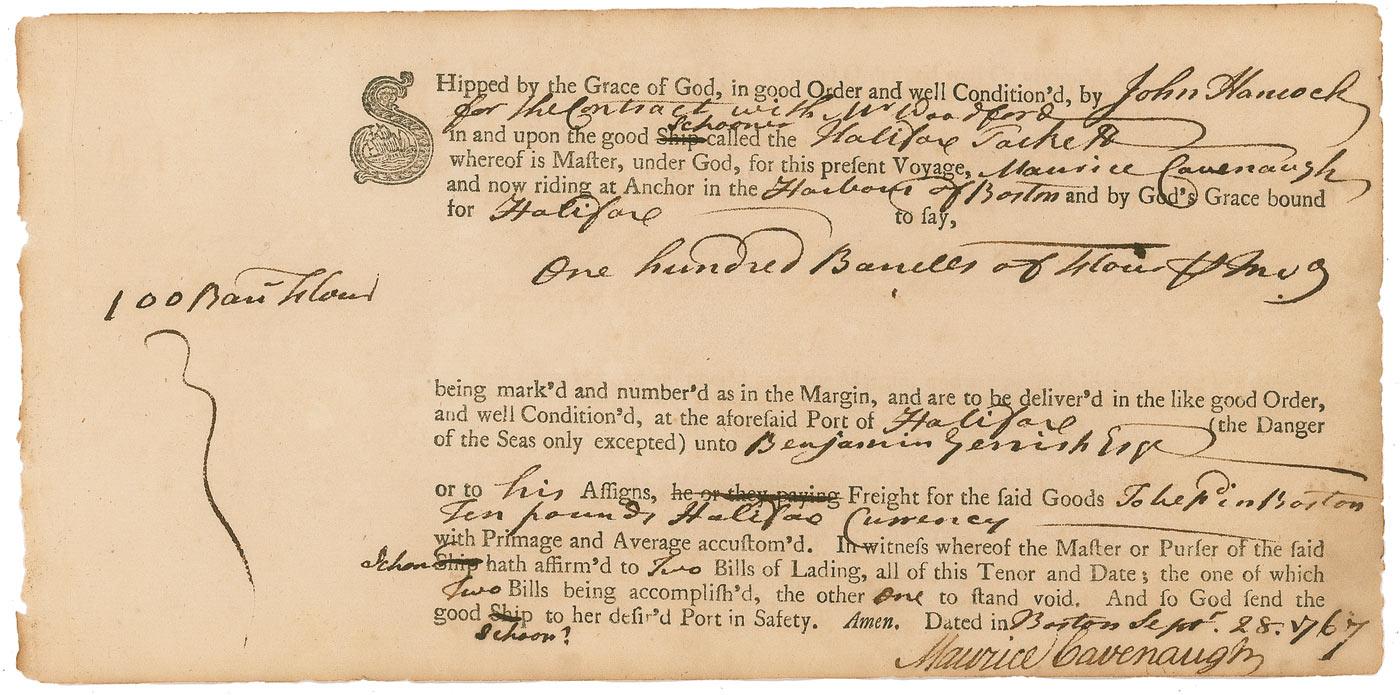 SHipped by the Grace of God, in good Order and well Condition'd, by John Hancock
for the Contract with Mr Woodford
Schooner
in and upon the good Ship called the Halifax Packett
whereof is Maſter, under God, for this preſent Voyage, Maurice Cavenaugh
and now riding at Anchor in the Harbour of Boston and by God's Grace bound
for Halifax to ſay,
One hundred Barrells of flour
100 Barr flour
being mark'd and number'd as in the Margin, and are to be deliver'd in the like good Order,
and well Condition'd, at the aforeſaid Port of Halifax (the Danger
of the Seas only excepted) unto Benjamin Gerrish Esqr
or to his Aſſigns, he or they paying Freight for the ſaid Goods To be Pd in Boston
Ten pounds Halifax Currency
with Primage and Average accuſtom'd. In witneſs whereof the Maſter or Purſer of the ſaid
Schon Ship hath affirm'd to Two Bills of Lading, all of this Tenor and Date; the one of which
Two Bills being accompliſh'd, the other one to ſtand void. And ſo God ſend the
good Ship to her deſir'd Port in Safety. Amen. Dated in Boston Sepr. 28. 1767
Schoonr
Maurice Cavenaugh